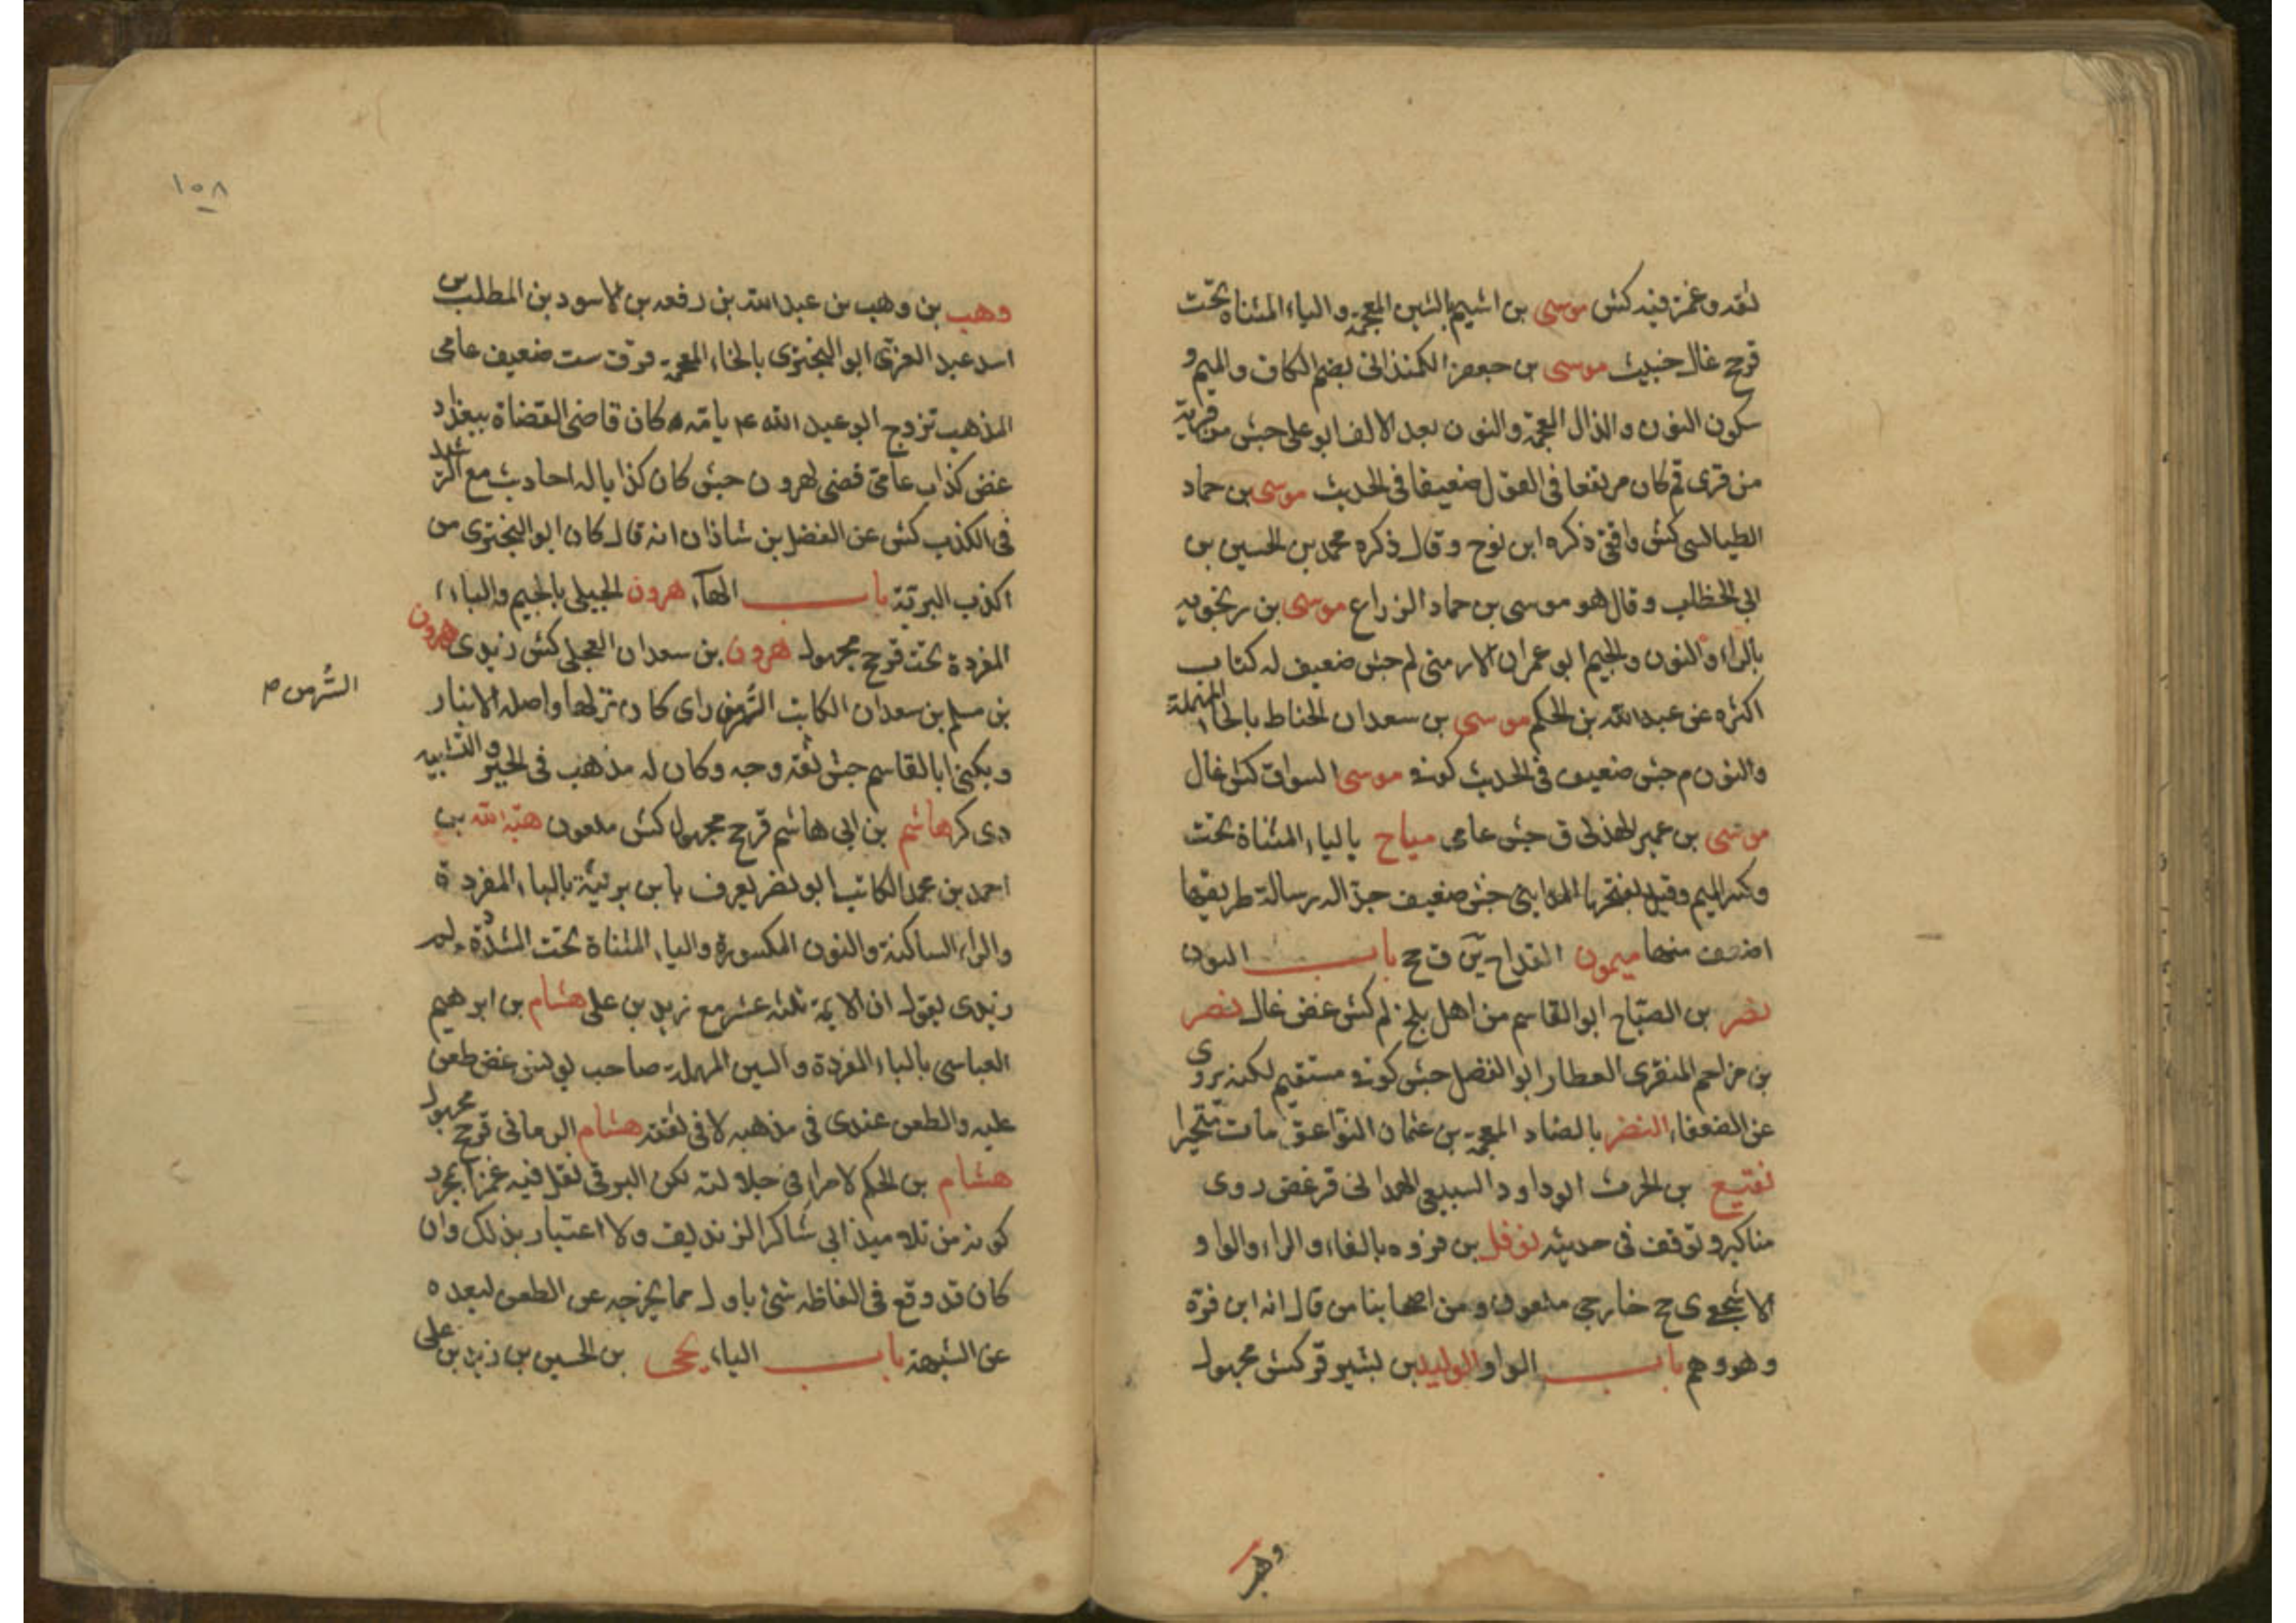 ثقه وغمز فيه كش موسى بن اشيم بالشين المعجمة والياء المثناة تحت
قرح غال خبيث موسى بن جعفر الكمنذانى بضم الكاف والميم و
سكون النون والذال المعجمة والنون بعد الالف ابو على جش من قرية
من قرى قم كان مرتفعا فى القول ضعيفا فى الحديث موسى بن حماد
الطيالسى كش واقفى ذكره ابن نوح وقال ذكره محمد بن الحسين بن
ابى الخطاب وقال هو موسى بن حماد الزراع موسى بن رنجويه
بالراء والنون والجيم ابو عمران الارمنى لم جش ضعيف له كتاب
اكثره عن عبدالله بن الحكم موسى بن سعدان الحناط بالحاء المهملة
والنون م جش ضعيف فى الحديث كوفى موسى السواق كش غال
موسى بن عمير الهذلى ق جش عامى مياح بالياء المثناة تحت
وكسر الميم وقيل بفتحها المداينى جش ضعيف جدا له رسالة طريقها
اضعف منها ميمون القداح ين ق ح باب النون
نصر بن الصباح ابو القاسم من اهل بلخ لم كش غض غال نصر
بن مزاحم المنقرى العطار ابو الفضل جش كوفى مستقيم لكنه يروى
عن الضعفاء النضر بالضاد المعجمة بن عثمان النوا عق مات متحيرا
نفيع بن الحرث ابو داود السبيعى الهمدانى قر غض روى
مناكير وتوقف فى حديثه نوفل بن فروه بالفاء والراء والواو
الاشجعى ى ح خارجى ملعون ومن اصحابنا من قال انه ابن قرة
وهو وهم باب الواو الوليد بن بشير قر كش مجهول
وهب
١٥٨
وهب بن وهب بن عبدالله بن رفعه بن الاسود بن المطلب بن
اسد عبد العزى ابو البخترى بالخاء المعجمة ق ست ضعيف عامى
المذهب تزوج ابو عبد الله ع بامه كان قاضى القضاة ببغداد
غض كذاب عامى قضى لهرون جش كان كذابا له احاديث مع الرشيد
فى الكذب كش عن الفضل بن شاذان انه قال كان ابو البخترى من
اكذب البرية باب الهاء هرون الجبلى بالجيم والباء
المفردة تحت قر ح مجهول هرون بن سعدان العجلى كش زيدى هرون
بن مسلم بن سعدان الكاتب السر من راى كان نزلها واصله الانبار
السر من ص
ويكنى ابا القاسم جش ثقه وجه وكان له مذهب فى الجبر والتشبيه
دى كر هاشم بن ابى هاشم قر ح مجهول كش ملعون هبة الله بن
احمد بن محمد الكاتب ابو نصر يعرف بابن برنية بالباء المفردة
والراء الساكنة والنون المكسورة والياء المثناة تحت المشددة لم
زيدى يقول ان الايمة ثلثه عشر مع زيد بن على هشام بن ابرهيم
العباسى بالباء المفردة والسين المهملة صاحب يونس غض طعن
عليه والطعن عندى فى مذهبه لا فى ثقته هشام الرمانى قر ح مجهول
هشام بن الحكم لا مراء فى جلالته لكن البرقى نقل فيه غمزا بمجرد
كونه من تلاميذ ابى شاكر الزنديق ولا اعتبار بذلك وان
كان قد وقع فى الفاظه شئ باول مما يخرجه عن الطعن لبعده
عن الشبهة باب الياء يحيى بن الحسين بن زيد بن على